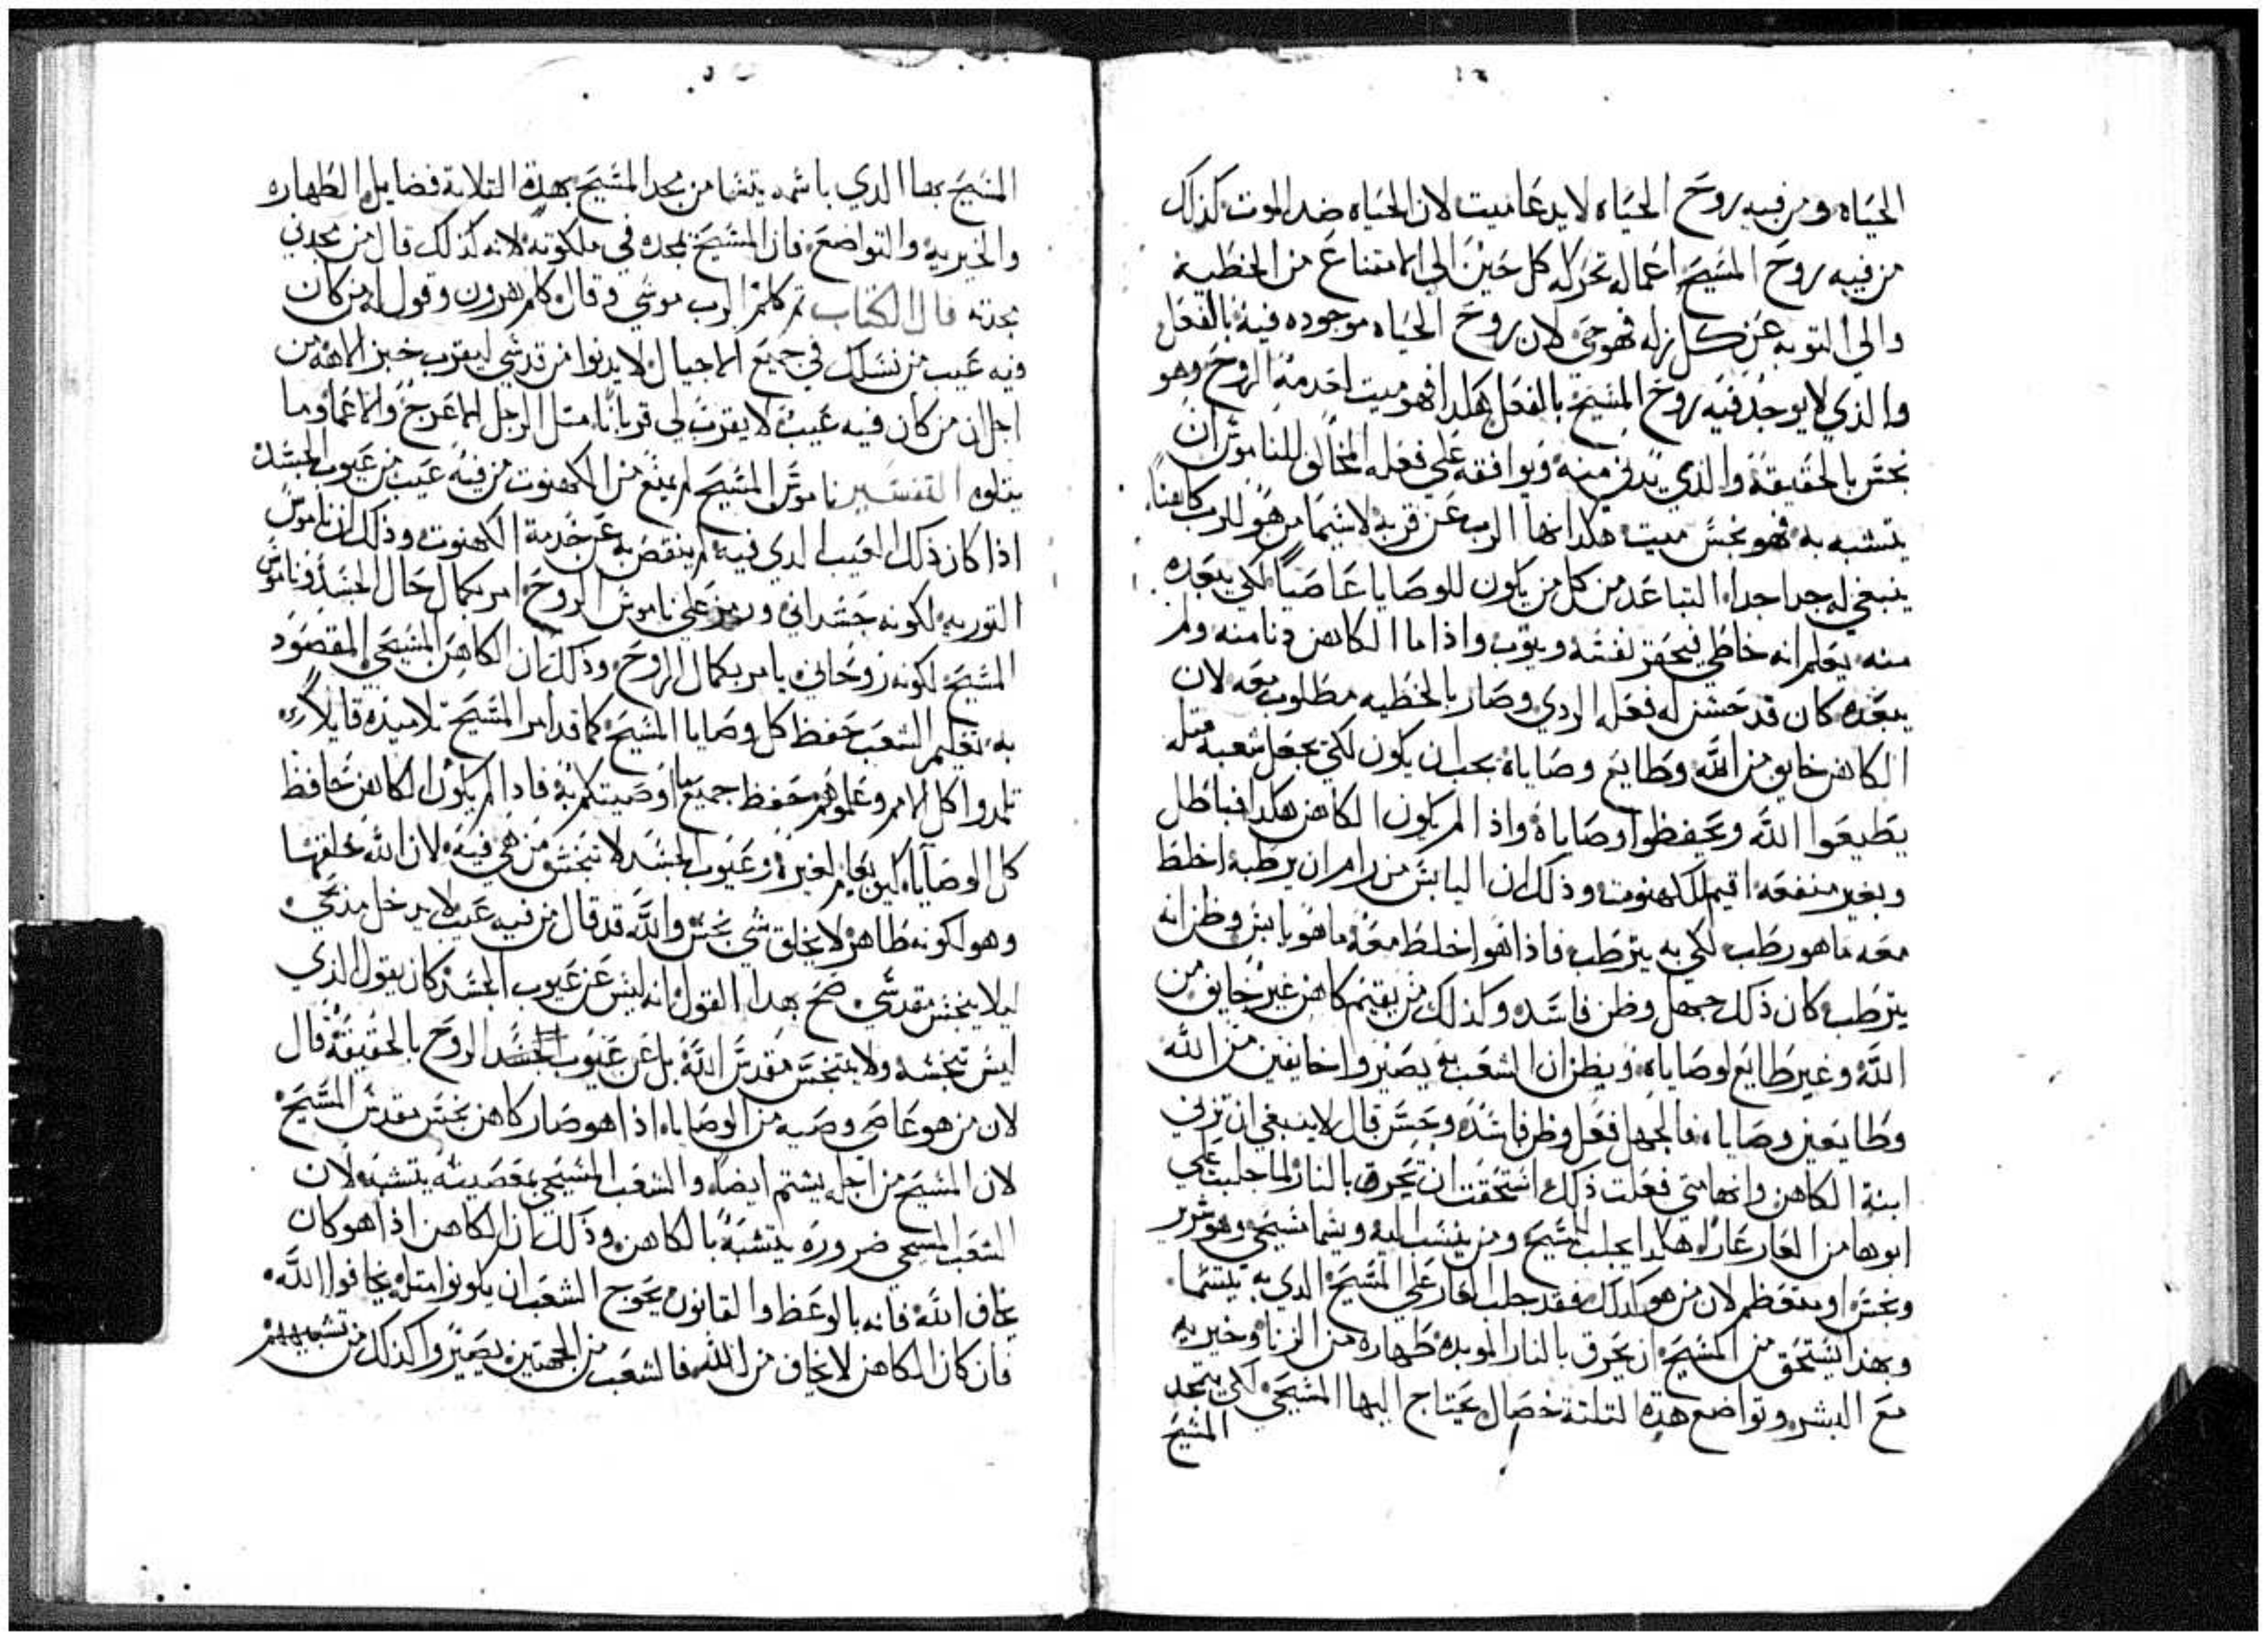 الحياه ومن فيه روح الحياه لا يدعا ميت لان الحياه ضد الموت كذلك
من فيه روح المسيح اعماله تحركه كل حين الى الامتناع من الخطيه
والى التوبه عن كل زله فهو حى لان روح الحياه موجوده فيه بالفعل
والذي لا يوجد فيه روح المسيح بالفعل هكذا فهو ميت لعدمه الروح وهو
نجس بالحقيقه والذي يدني منه ويوافقه على فعله المخالف للناموس ان
يتشبه به فهو نجس ميت هكدا نها الرب عن قربه لاسيما من هو للرب كاهنا
ينبغي له جدا جدا التباعد من كل من يكون للوصايا عاصيا لكي ببعده
منه يعلم انه خاطي فيحقر نفسه ويتوب واذا ما الكاهن دنا منه ولم
يبعده كان قد حسن له فعله الردي وصار بالخطيه مطلوب معه لان
الكاهن خايف من الله وطايع وصاياه يجب ان يكون لكي يجعل شعبه مثله
يطيعوا الله ويحفظوا وصاياه واذا لم يكون الكاهن هكدا فباطل
وبغير منفعه اقيم للكهنوت وذلك ان اليابس من رام ان يرطبه اخلط
معه ما هو رطب لكي به يترطب فاذا هو اخلط معه ما هو يابس وظن انه
يترطب كان ذلك جهل وظن فاسده وكذلك من يقيم كاهن غير خايف من
الله وغير طايع لوصاياه ويظن ان الشعب به يصيروا خايفين من الله
وطايعين وصاياه فالجهل فعل وظن فاسده وحسن قال لا ينبغي ان تزني
ابنة الكاهن وانها متى فعلت ذلك استحقت ان تحرق بالنار لما جلبت على
ابوها من العار عاراً هكدا يجلب المسيح ومن ينسب اليه ويسما مسيحي وهو شرير
ونجس او متعظم لان من هو كدلك فقد جلب العار على المسيح الدي به يتسما
وبهذا يستحق من المسيح ان يحرق بالنار الموبده طهاره من الزنا وخيريه
مع البشر وتواضع هذه التلته خصال يحتاج اليها المسيحي لكي يتمجد
المسيح
المسيح بها الدي باسمه يتسما من مجد المسيح بهده التلاتة فضايل الطهاره
والخيريه والتواضع فان المسيح يمجده في ملكوته لانه كذلك قال من مجدني
مجدته قال الكتاب تم كلم الرب موسى وقال كلم هرون وقول له من كان
فيه عيب من نسلك في جميع الاجيال لا يدنوا من قدسي ليقرب خبز الاهه من
اجل ان من كان فيه عيب لا يقرب لي قرباناً مثل الرجل الاعرج والاعما وما
يتلوه التفسير ناموس المسيح لم يمنع من الكهنوت من فيه عيب من عيوب الجسد
اذا كان ذلك العيب الدي فيه لم ينقص به عن خدمة الكهنوت وذلك ان ناموس
التوريه لكونه جسداني ورمز على ناموس الروح امر بكمال حال الجسد وناموس
المسيح لكونه روحاني يامر بكمال الروح وذلك ان الكاهن المسيحي المقصود
به تعليم الشعب حفظ كل وصايا المسيح كما قد امر المسيح تلاميذه قايلاً
تلمدوا كل الامم وعلموهم حفظ جميع ما اوصيتكم به فادا لم يكون الكاهن حافظ
كل الوصايا كيف يعلم لغيره وعيوب الجسد لا تنجس من هي فيه لان الله خلقها
وهو لكونه طاهر لا يخلق شي نجس والله قد قال من فيه عيب لا يدخل مذبحي
ليلا ينجس مقدسي صح بهدا القول انه ليس عن عيوب الجسد كان يقول الذي
ليس تنجسه ولا يتنجس مقدس الله بل عن عيوب الروح بالحقيقه قال
لان من هو عاصي وصيه من الوصايا اذا هو صار كاهن نجس مقدس المسيح
لان المسيح من اجله يشتم ايضا والشعب المسيحي بمعصيته يتشبه لان
الشعب المسيحي ضروره يتشبه بالكاهن وذلك ان الكاهن اذا هو كان
يخاف الله فانه بالوعظ والقانون يحوج الشعب ان يكونوا مثله يخافوا الله
فان كان الكاهن لا يخاف من الله فالشعب من الجهتين يصيروا كذلك من تشبههم